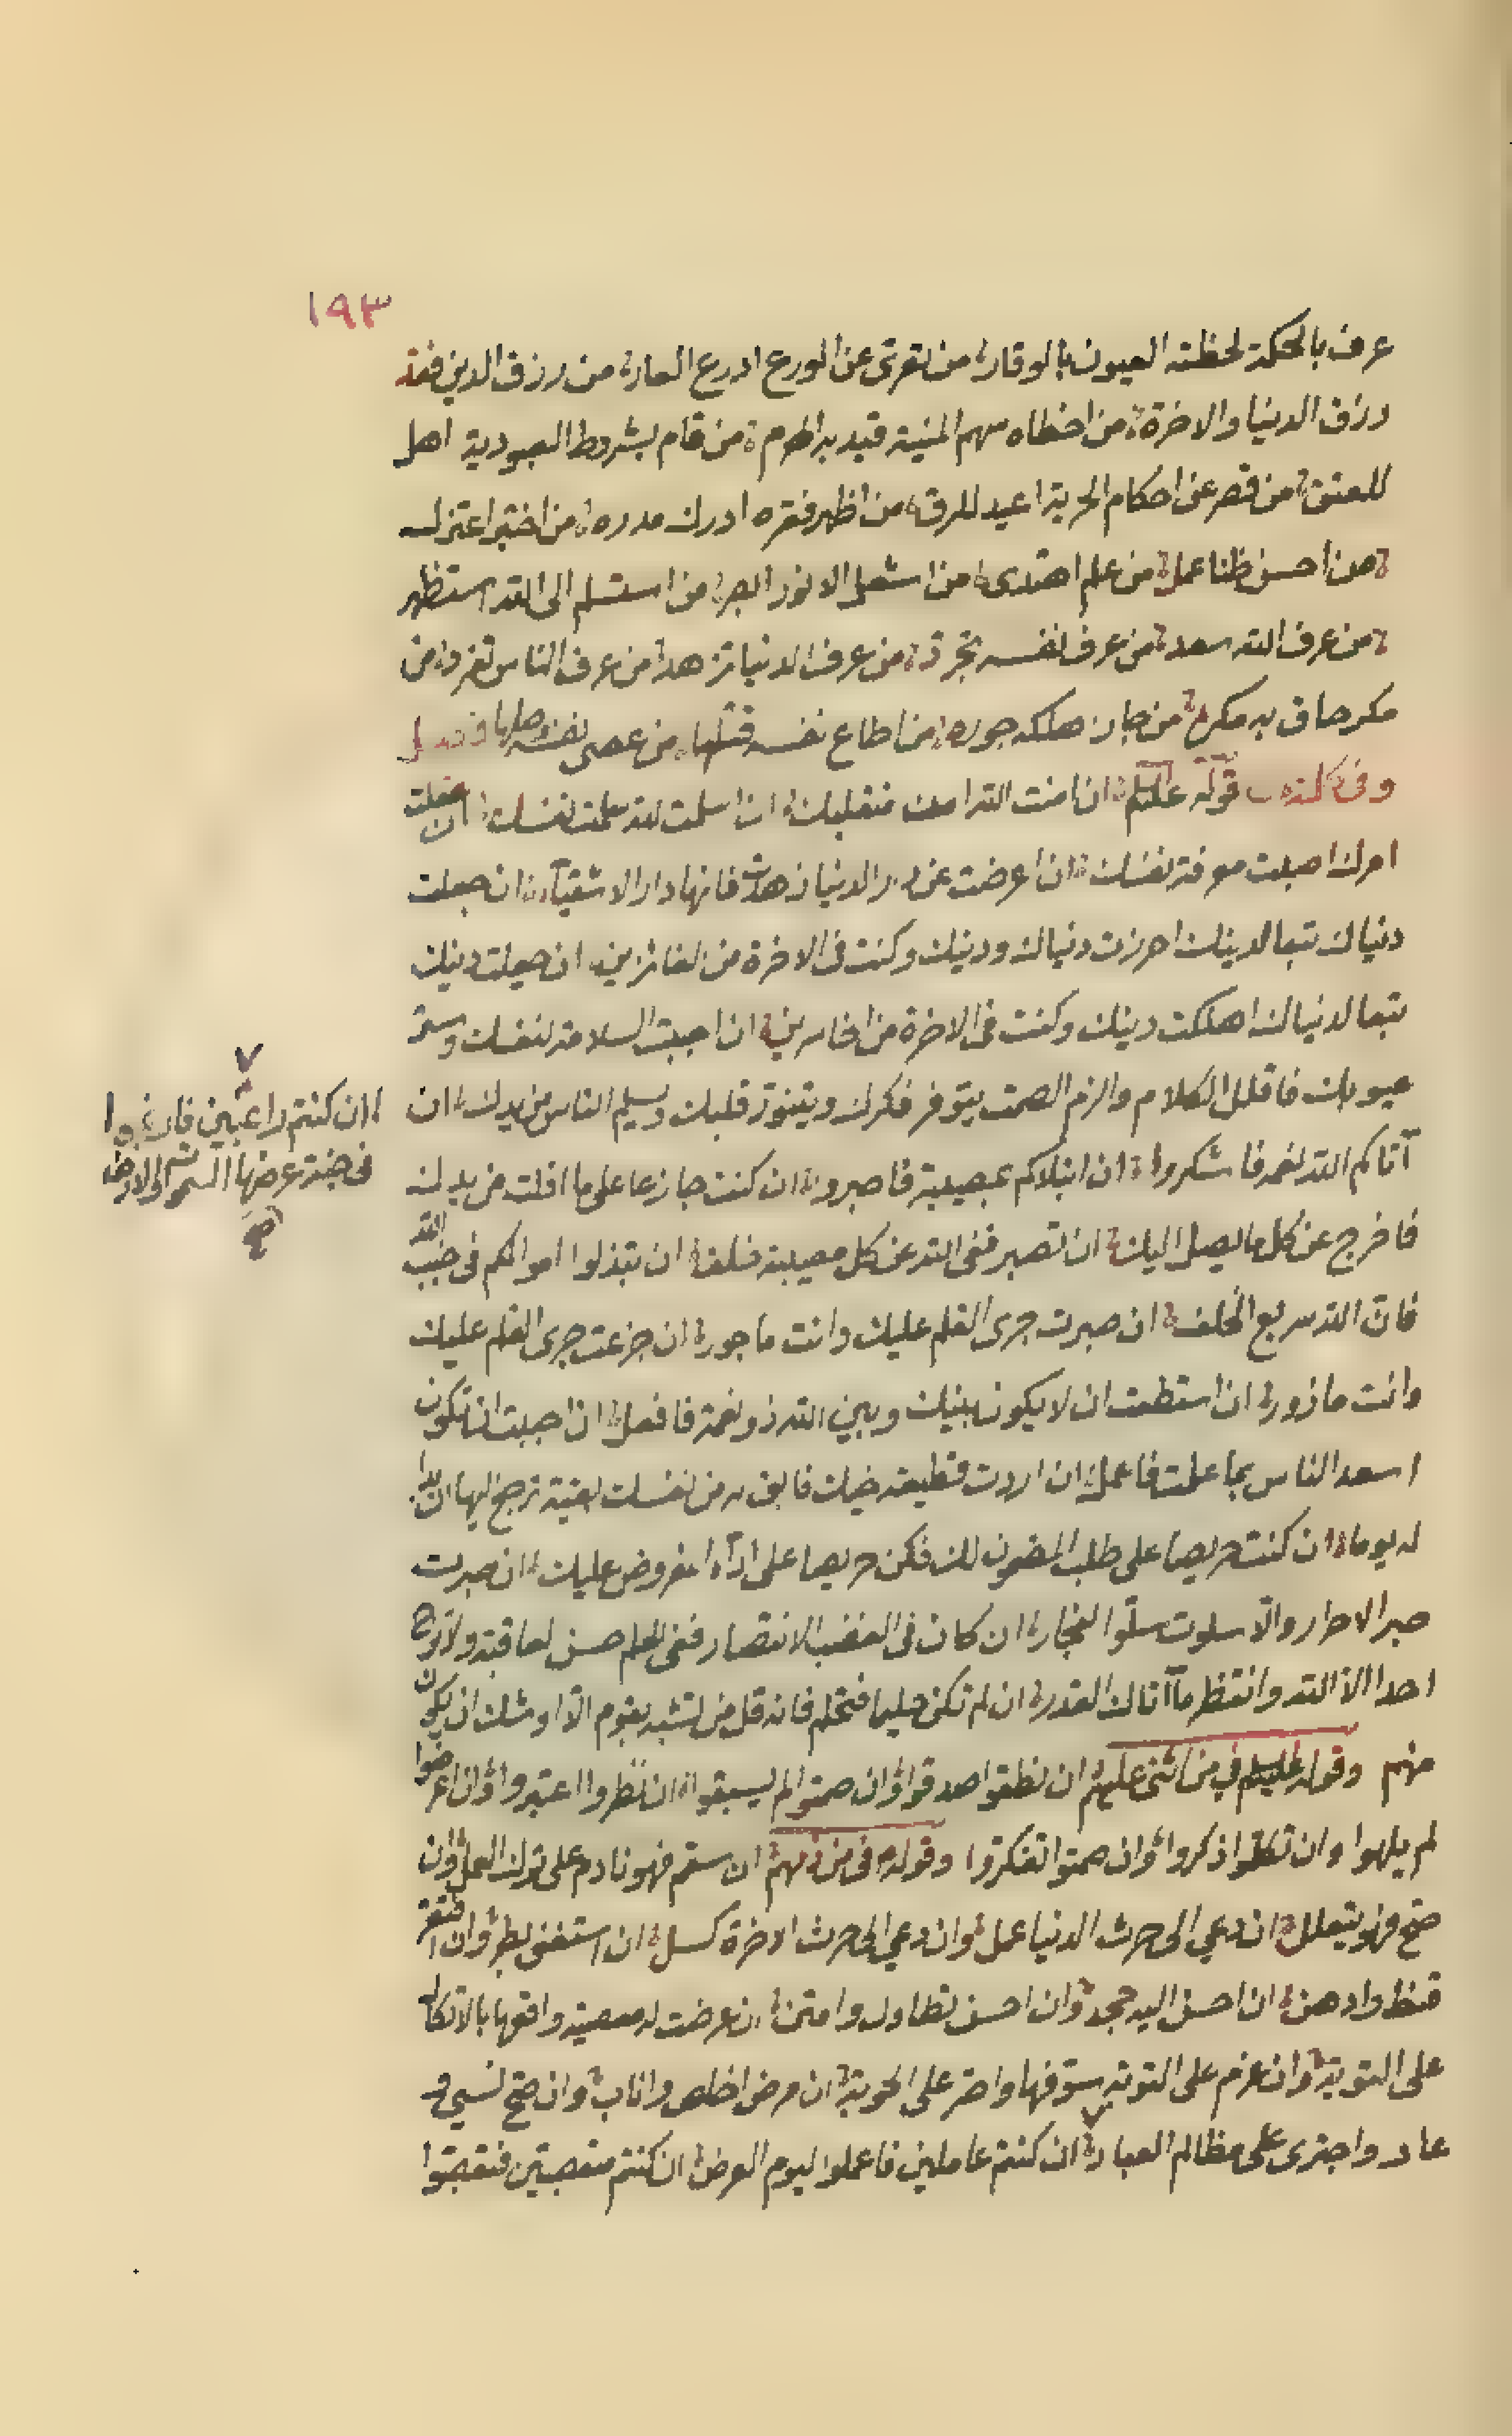 ١٩٣
عرف بالحكمة لحظته العيون بالوقار من تعرى عن الورع ادرع العار من رزق الدين فقد
رزق الدنيا والاخرة من اخطاه سهم المنية قيده الهرم من قام بشروط العبودية اهل
للعتق من قصر عن احكام الحرية اعيد للرق من اظهر فقره ادرك من اختبر اعتزل
من احسن ظنا عمل من علم اهتدى من استسلم الى الله استظهر
من عرف الله سعد من عرف نفسه تجرد من عرف الدنيا تزهد من عرف الناس تفرد من
مكر حاق به مكره من جار اهلكه جوره من اطاع نفسه قتلها من عصى نفسه وصلها
وفي قوله عليه السلم ان امنت بالله امن منقلبك ان اسلمت لله سلمت نفسك ان عقلت
امرك اصبت معرفة نفسك ان اعرضت عن دار الدنيا زهدت فانها دار الاشقياء ان جعلت
دنياك تبعا لدينك احرزت دنياك ودينك وكنت في الاخرة من الفائزين ان جعلت دينك
تبعا لدنياك اهلكت دينك وكنت في الاخرة من الخاسرين ان احببت السلامة لنفسك وستر
عيوبك فاقلل الكلام والزم الصمت يتوفر فكرك ويتنور قلبك ويسلم الناس من يدك ان
آتاكم الله نعمة فاشكروا ان ابتلاكم بمصيبة فاصبروا ان كنت جازعا على ما افلت من يديك
فاخرج عن كل ما لم يصل اليك ان تصبر ففي الله عن كل مصيبة خلف ان تبذلوا اموالكم في جنب الله
فان الله سريع الخلف ان صبرت جرى القلم عليك وانت ماجور ان جزعت جرى القلم عليك
وانت مازور ان استطعت ان لا يكون بينك وبين الله ذو نعمة فافعل ان احببت ان تكون
اسعد الناس بما علمت فاعمل ان اردت قطيعة اخيك فابق له من نفسك بقية ترجع اليها ان بدا
له يوما ان كنت حريصا على طلب المضمون لك فكن حريصا على اداء المفروض عليك ان صبرت
صبر الاحرار والا سلوت سلو الاغمار ان كان في الغضب الانتصار ففي الحلم حسن العاقبة ولا ترج
احدا الا الله وانتظر ما آتاك القدر ان لم تكن حليما فتحلم فانه قل من تشبه بقوم الا اوشك ان يكون
منهم وقوله عليه السلم في من اثنى عليهم ان نطقوا صدقوا وان صمتوا لم يسبقوا ان نظروا اعتبروا وان اعرضوا
لم يلهوا وان تكلموا ذكروا وان صمتوا تفكروا وقوله في من ذمهم ان سقم فهو نادم على ترك العمل وان
صح فهو يتعلل ان دعي الى حرث الدنيا عمل وان دعي الى حرث الاخرة كسل ان استغنى بطر وان افتقر
قنط واوهن ان احسن اليه جحد وان احسن تطاول وامتن ان عرضت له معصية واقعها بالاتكال
على التوبة وان عزم على التوبة سوفها واصر على الحوبة ان مرض اخلص واناب وان صح نسي و
عاد واجترى على مظالم العباد ان كنتم عاملين فاعملوا ليوم العرض ان كنتم متعصبين فتعصبوا
ان كنتم راغبين فارغبوا
في جنة عرضها السموات والارض
صح